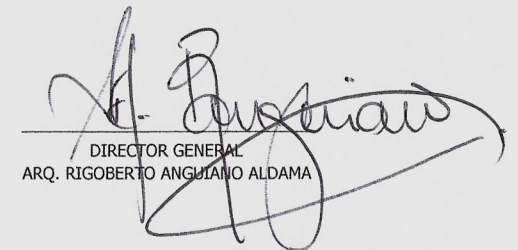 DIRECTOR GENERAL
ARQ. RIGOBERTO ANGUIANO ALDAMA